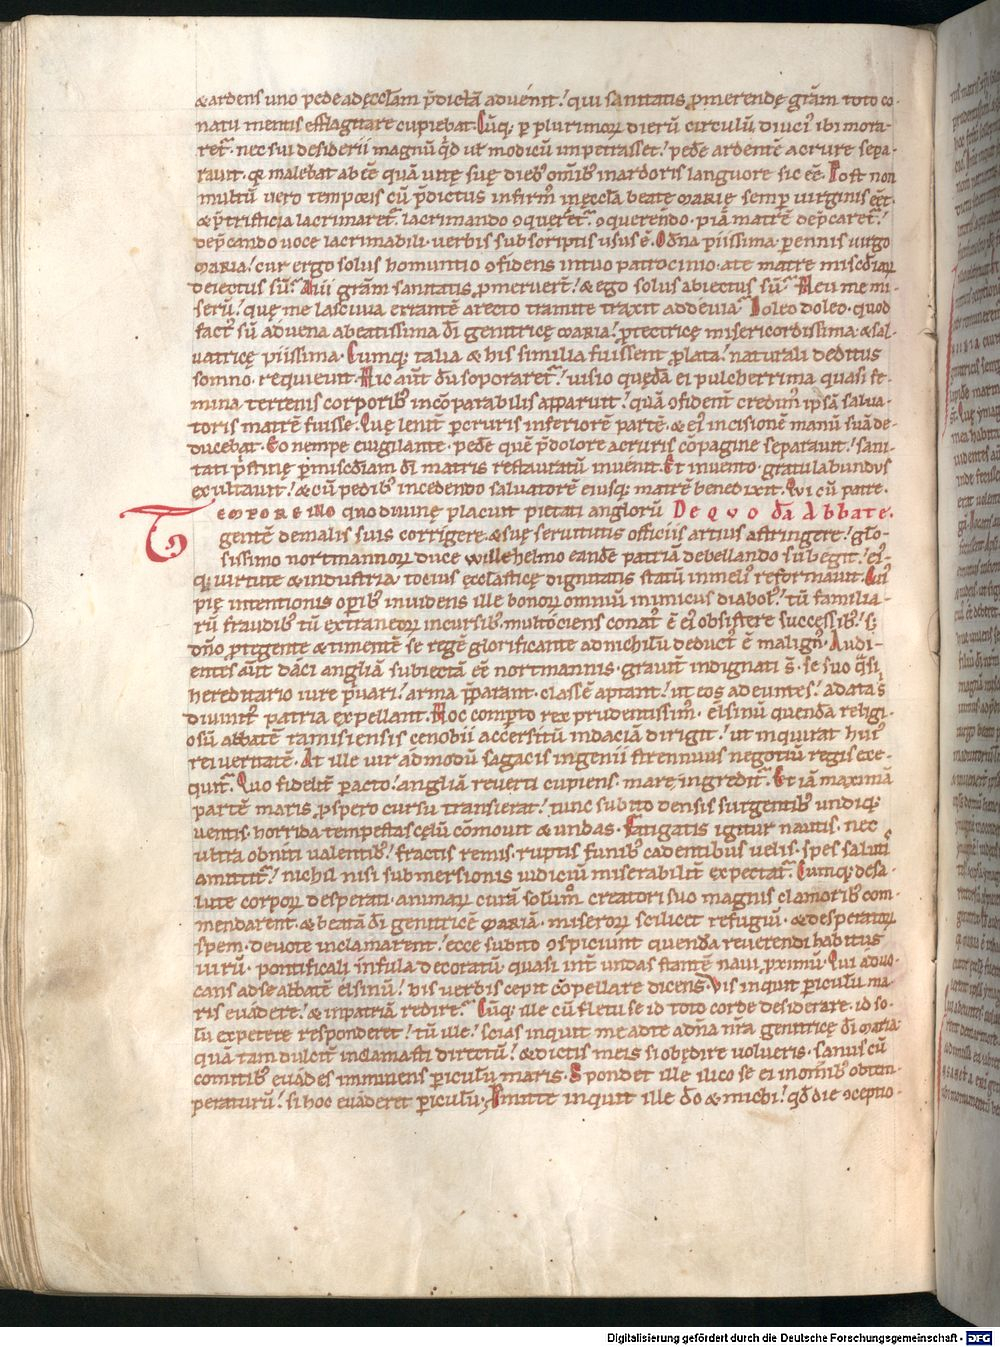 & ardens uno pede ad ęccl̄am p̄dictā aduenit. qui sanitatis ꝓmerendę grām toto co-
natu mentis efflagitare cupiebat. Cūq; ꝑ plurimoꝝ dierū circulū diuci' ibi mora-
ret̄. nec sui desiderii magnū q̇d ut̄ modicū impetrasset. pedē ardentē a crure sepa-
rauit. q̇ malebat abscē quā uitę suę dieb; om̄ib; in ardoris languore sic ēē. Post non
multū uero tempoꝛis cū p̄dictus infirm' in ęccl̄a beatę marię semꝑ uirginis eēt.
& p̄ tristicia lacrimaret̄. lacrimando ꝯqueret̄. ꝯquerendo piā matrē dep̄caret̄.
dep̄cando uoce lacrimabili uerbis subscriptis usus ē. O dn̄a piissima ꝑennis uirgo
maria. cur ergo solus homuntio ꝯfidens in tuo patrocinio. a te matre misc̄diaꝝ
deiectus sū. Alii grām sanitatis ꝓmeruert̄. & ego solus abiectus sū. Heu me mi-
serū. quę me lasciuia errantē a recto tramite traxit ad deuia. Doleo doleo. quod
fact' sū aduena a beatissima dī genitricę maria. ꝓtectricę misericordissima & sal-
uatricę piissima. Cumq; talia & his similia fuissent ꝓlata. naturali deditus
somno requieuit. Hic aūt dū soporaret̄. uisio quędā ei pulcherrima quasi fe-
mina terrenis corporib; incōparabilis apparuit. quā ꝯfident̄ credim' ipsā salua-
toris matrē fuisse. Quę lenit̄ ꝑ cruris inferiorē partē. & ei' incisionē manū suā de-
ducebat. Eo nempe euigilante. pedē quē p̄ dolore a cruris cōpagine separauit. sani-
tati p̄stinę ꝑ misc̄diam dī matris restauratū inuenit. Et inuento gratulabundus
exultauit. & cū pedib; incedendo saluatorē eiusq; matrē benedixit. Qui cū patre.
Tempore illo quo diuinę placuit pietati angloꝝ De quodā Abbate.
gentē de malis suis corrigere. & suę seruitutis officiis artius astringere. glo-
sissimo nortmannoꝝ duce willehelmo eandē patriā debellando sūbegit. ei'-
q; uirtute & industria tocius ecclasticę dignitatis statū in meli' reformauit. Cui'
pię intentionis oꝑib; inuidens ille bonoꝝ omniū inimicus diabol'. tū familia-
rū fraudib; tū extraneoꝝ incursib;. multociens conat' ē ei' obsistere successib;. s;
dn̄o ꝓtegente & timentē se regē glorificante ad nichilū deduct' ē malign'. Audi-
entes aūt dāci angliā subiectā ēē nortmannis. grauit̄ indignati s̄. se suo q̄si
hereditario iure p̄uari. arma p̄parant. classē aptant. ut eos adeuntes. a data s̄
diuinit' patria expellant. Hoc comꝑto rex prudentissim'. elsinū quendā religi-
osū abbatē ramisiensis cenobii accersitū in daciā dirigit. ut inquirat hui'
rei ueritatē. At ille uir admodū sagacis ingenii strennuus negotiū regis exe-
quit̄. Quo fidelit̄ ꝑacto. angliā reuerti cupiens. mare ingredit̄. Et iā maximā
partē maris ꝓspero cursu transierat. tunc subito densis surgentib; undiq;
uentis. horrida tempestas cęlū cōmouit & undas. Fatigatis igitur nautis. nec
ultra obniti ualentib;. fractis remis. ruptis funib; cadentibus uelis. spes salutī
amittit̄. nichil nisi submersionis iudiciū miserabilit̄ expectat̄. Cumq; de sa-
lute corporꝝ desperati. animarꝝ curā solūm creatori suo magnis clamorib; com-
mendarent. & beatā dī genitricē mariā. miseroꝝ scilicet refugiū. & desperatoꝝ
spem. deuote inclamarent. ecce subito ꝯspiciunt quendā reuerendi habitus
uirū. pontificali infula decoratū. quasi int̄ undas stantē naui ꝓximū. Qui aduo-
cans ad se abbatē elsinū. his uerbis cepit cōpellare dicens. Vis inquit periculū ma-
ris euadere. & in patriā redire. Cūq; ille cū fletu se id toto corde desiderare. id so-
lū expetere responderet. tū ille. scias inquit me a dn̄a nr̄a genitricę dī maria
quā tam dulcit̄ inclamasti directū. & dictis meis si obędire uolueris. sanus cū
comitib; euades imminens ꝑiculū maris. Spondet ille ilico se ei in om̄ib; obtem-
peraturū. si hoc euaderet ꝑiculū. Promitte inquit ille dō & michi. qd̄ die ꝯceptio-
Digitalisierung gefördert durch die Deutsche Forschungsgemeinschaft - DFG